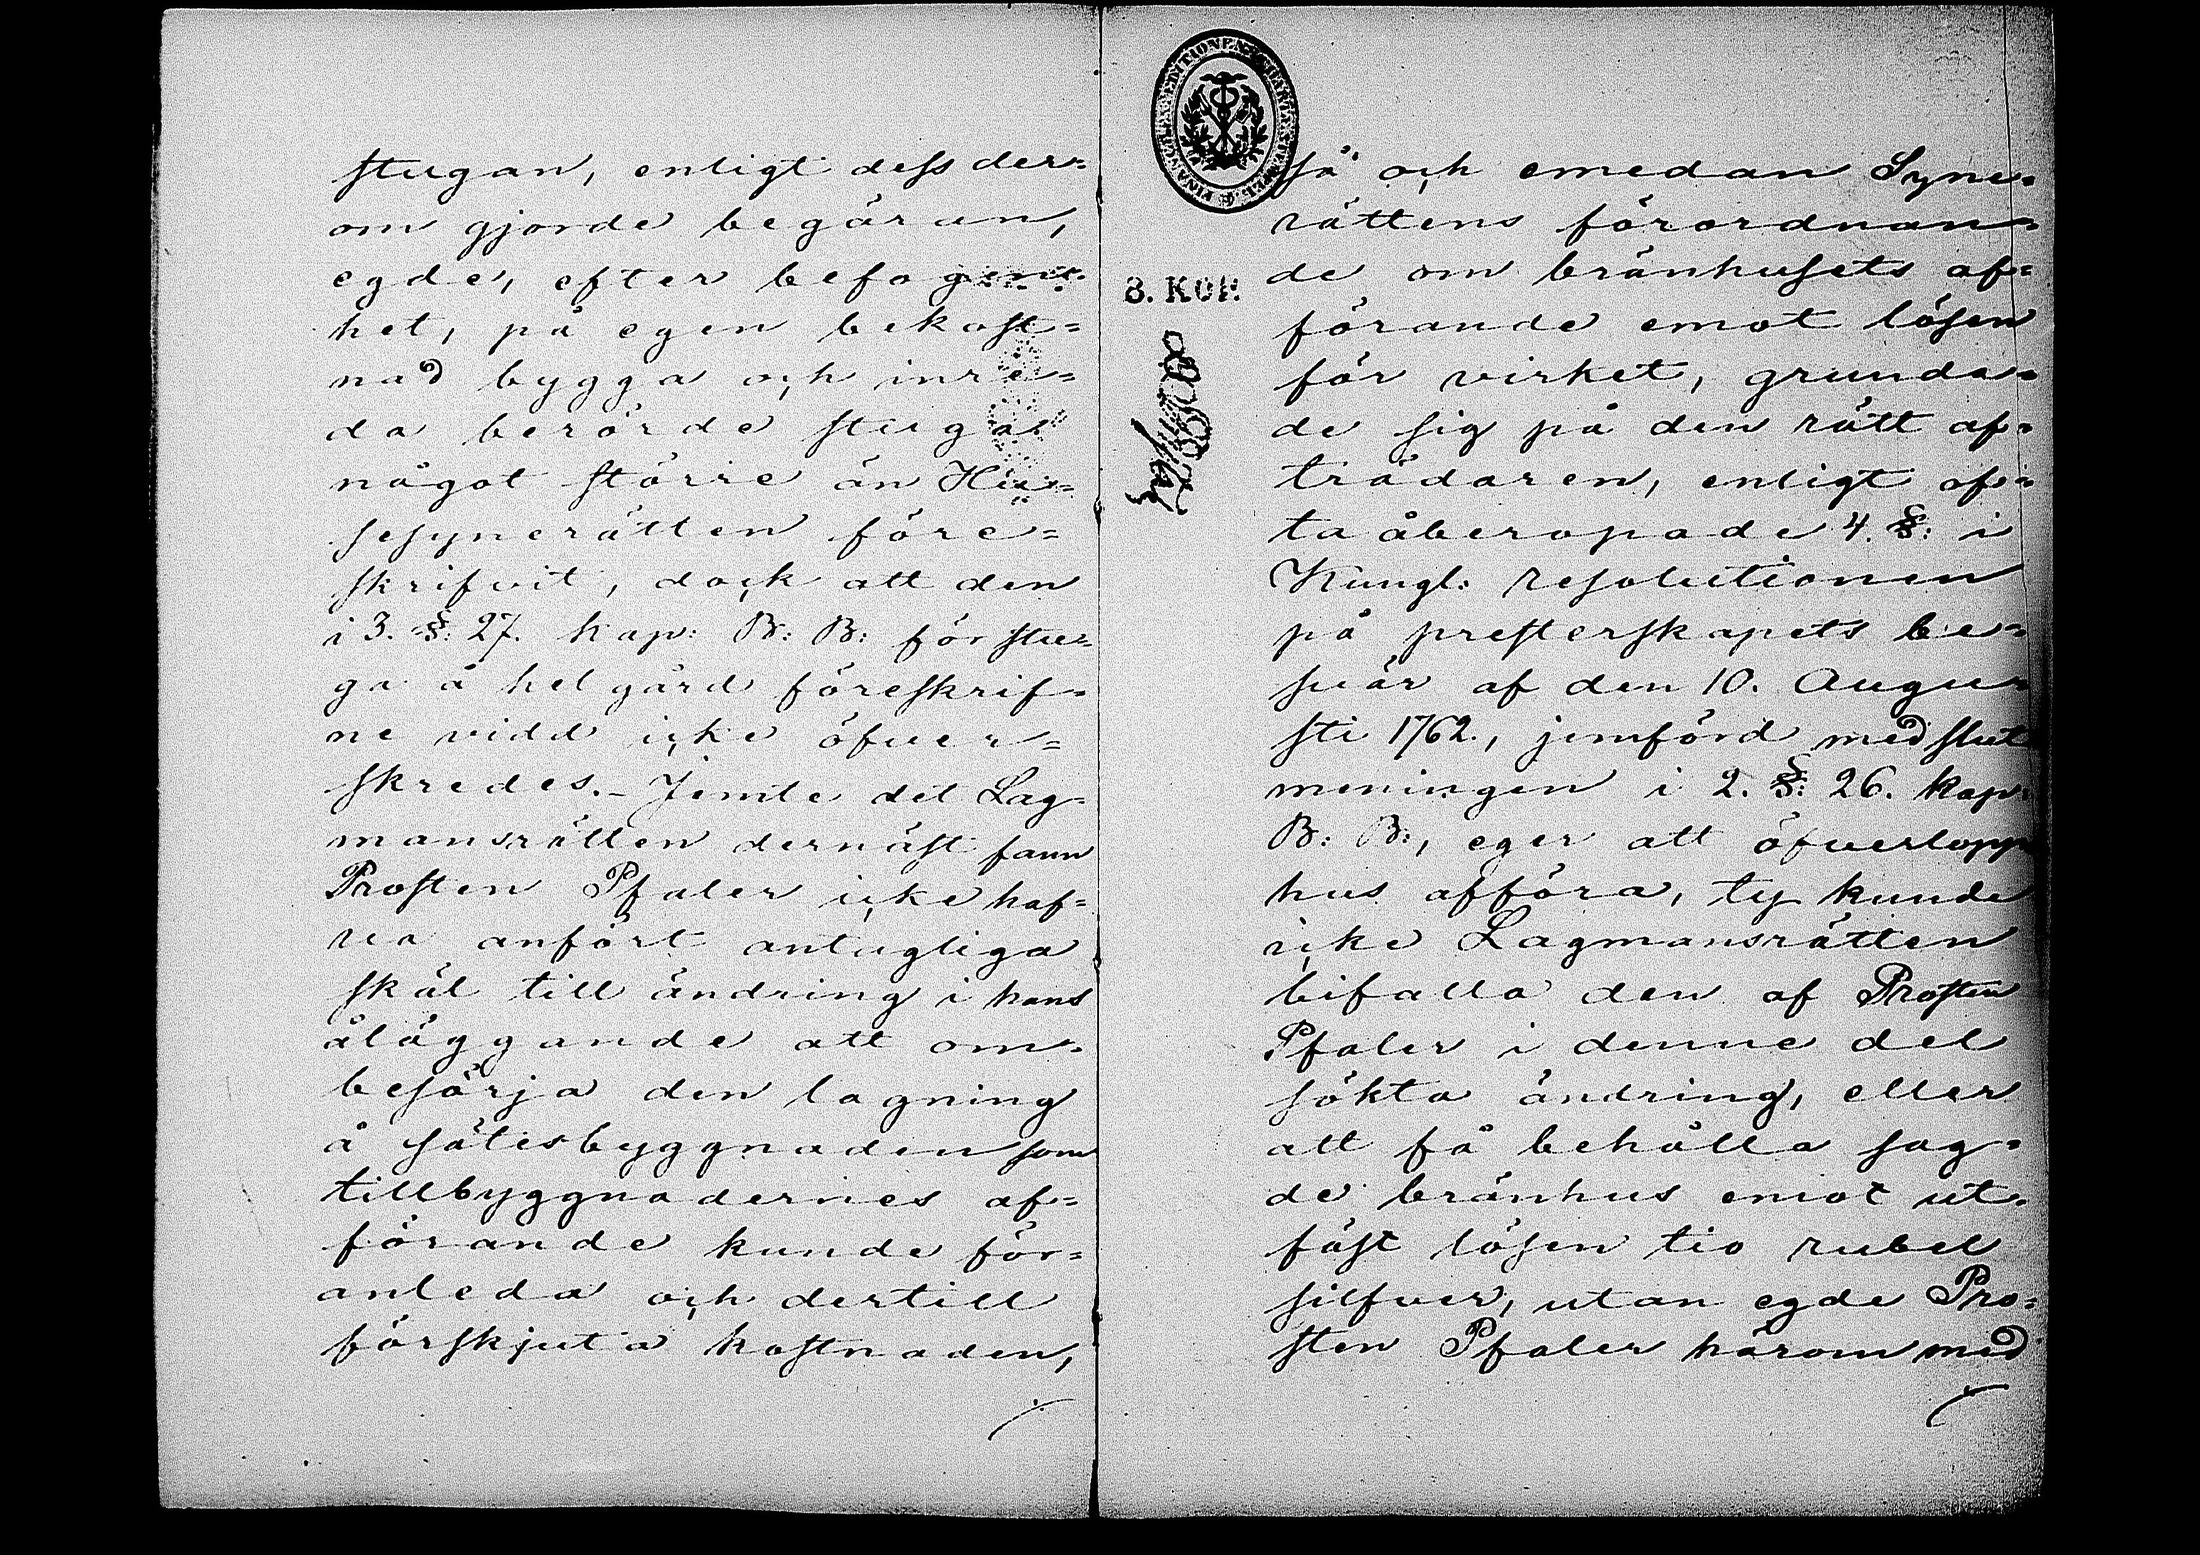 stugan, enligt dess der=
om gjorde begäran,
egde, efter befogen=
het, på egen bekost=
nad bygga och inre=
da berörde stuga
något större än Hu=
sesynerätten före=
skrifvit, dock att den
i 3. §: 27. kap: B: B: för stu=
ga å hel gård föreskrif=
ne vidd icke öfver=
skredes. – Jemte det Lag=
mansrätten dernäst fann
Prosten Pfaler icke haf=
va anfört antagliga
skäl till ändring i hans
åläggande att om=
besörja den lagning
å sätesbyggnaden som
tillbyggnadernes af=
förande kunde för=
anleda och dertill
förskjuta kostnaden,
8. KOP.
så och emedan Syne=
rättens förordnan=
de om bränhusets af=
förande emot lösen
för virket, grunda=
de sig på den rätt af=
trädaren, enligt of=
ta åberopade 4. §: i
Kungl: resolutionen
på presterskapets be=
svär af den 10. Augu=
sti 1762., jemförd med slut
meningen i 2. §: 26. kap:
B: B:, eger att öfverlopps
hus afföra, ty kunde
icke Lagmansrätten
bifalla den af Prosten
Pfaler i denne del
sökta ändring, eller
att få behålla sag=
de bränhus emot ut=
fäst lösen tio rubel
silfver, utan egde Pro=
sten Pfaler härom med